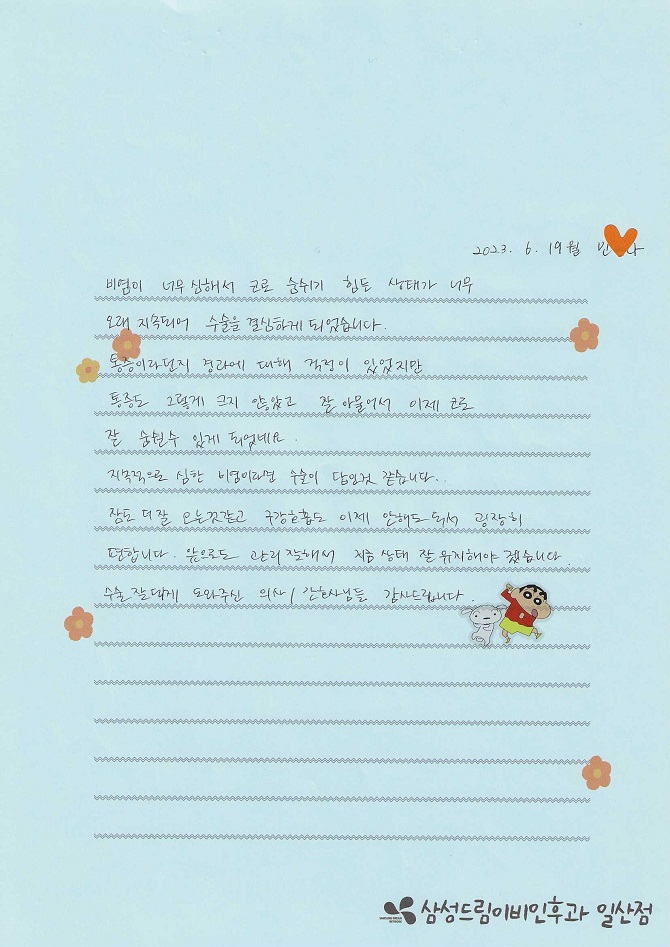 2023. 6. 19월
비염이 너무 심해서 코로 숨쉬기 힘든 상태가 너무
오래 지속되어 수술을 결심하게 되었습니다.
통증이라던지 경과에 대해 걱정이 있었지만
통증도 그렇게 크지 않았고 잘 아물어서 이제 코로
잘 숨쉴수 있게 되었네요.
지속적으로 심한 비염이라면 수술이 답인것 같습니다..
잠도 더 잘 오는것같고 구강호흡도 이제 안해도 되서 굉장히
편합니다. 앞으로도 관리 잘해서 지금 상태 잘 유지해야 겠습니다.
수술 잘되게 도와주신 의사/간호사님들 감사드립니다.
삼성드림이비인후과 일산점